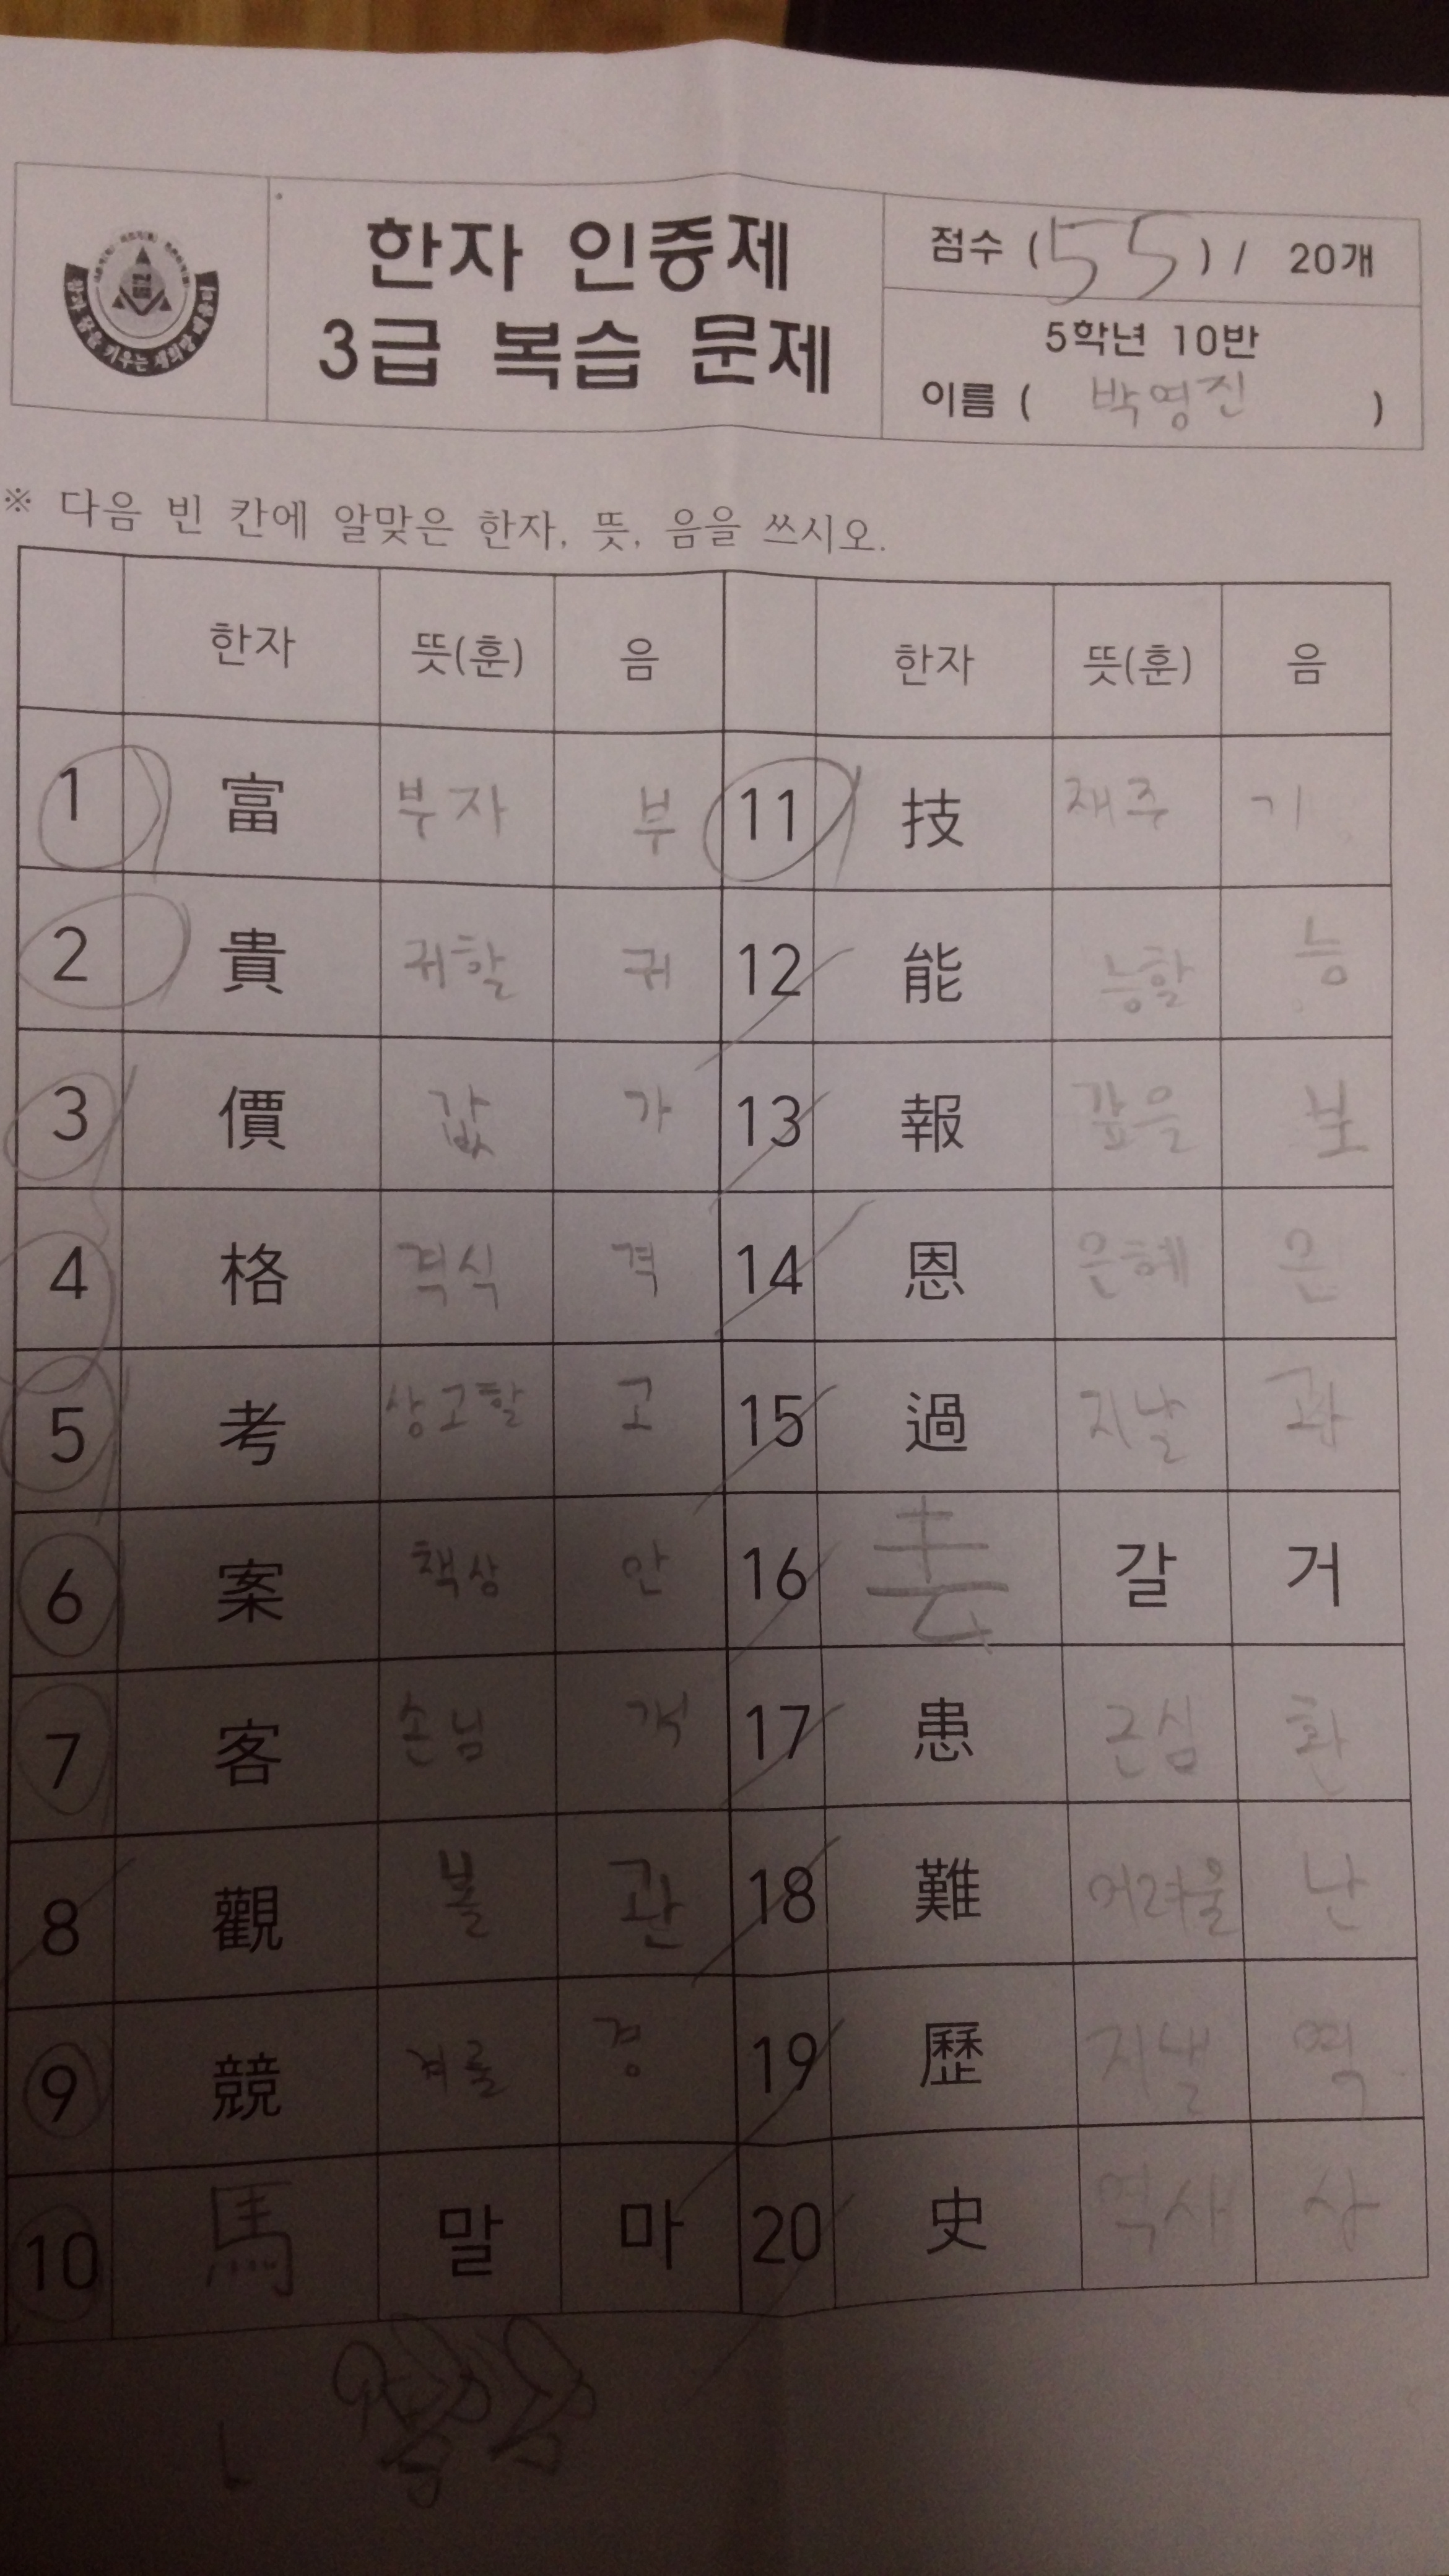 한자 인증제
3급 복습 문제
점수 (55) / 20개
5학년 10반
이름 ( 박영진 )
꿈을 키우는 새희망
※ 다음 빈 칸에 알맞은 한자, 뜻, 음을 쓰시오.
한자 뜻(훈) 음 한자 뜻(훈) 음
1 富 부자 부 11 技 재주 기
2 貴 귀할 귀 12 能 능할 능
3 價 값 가 13 報 갚을 보
4 格 격식 격 14 恩 은혜 은
5 考 상고할 고 15 過 지날 과
6 案 책상 안 16 去 갈 거
7 客 손님 객 17 患 근심 환
8 觀 볼 관 18 難 어려울 난
9 競 겨룰 경 19 歷 지낼 력
10 馬 말 마 20 史 역사 사